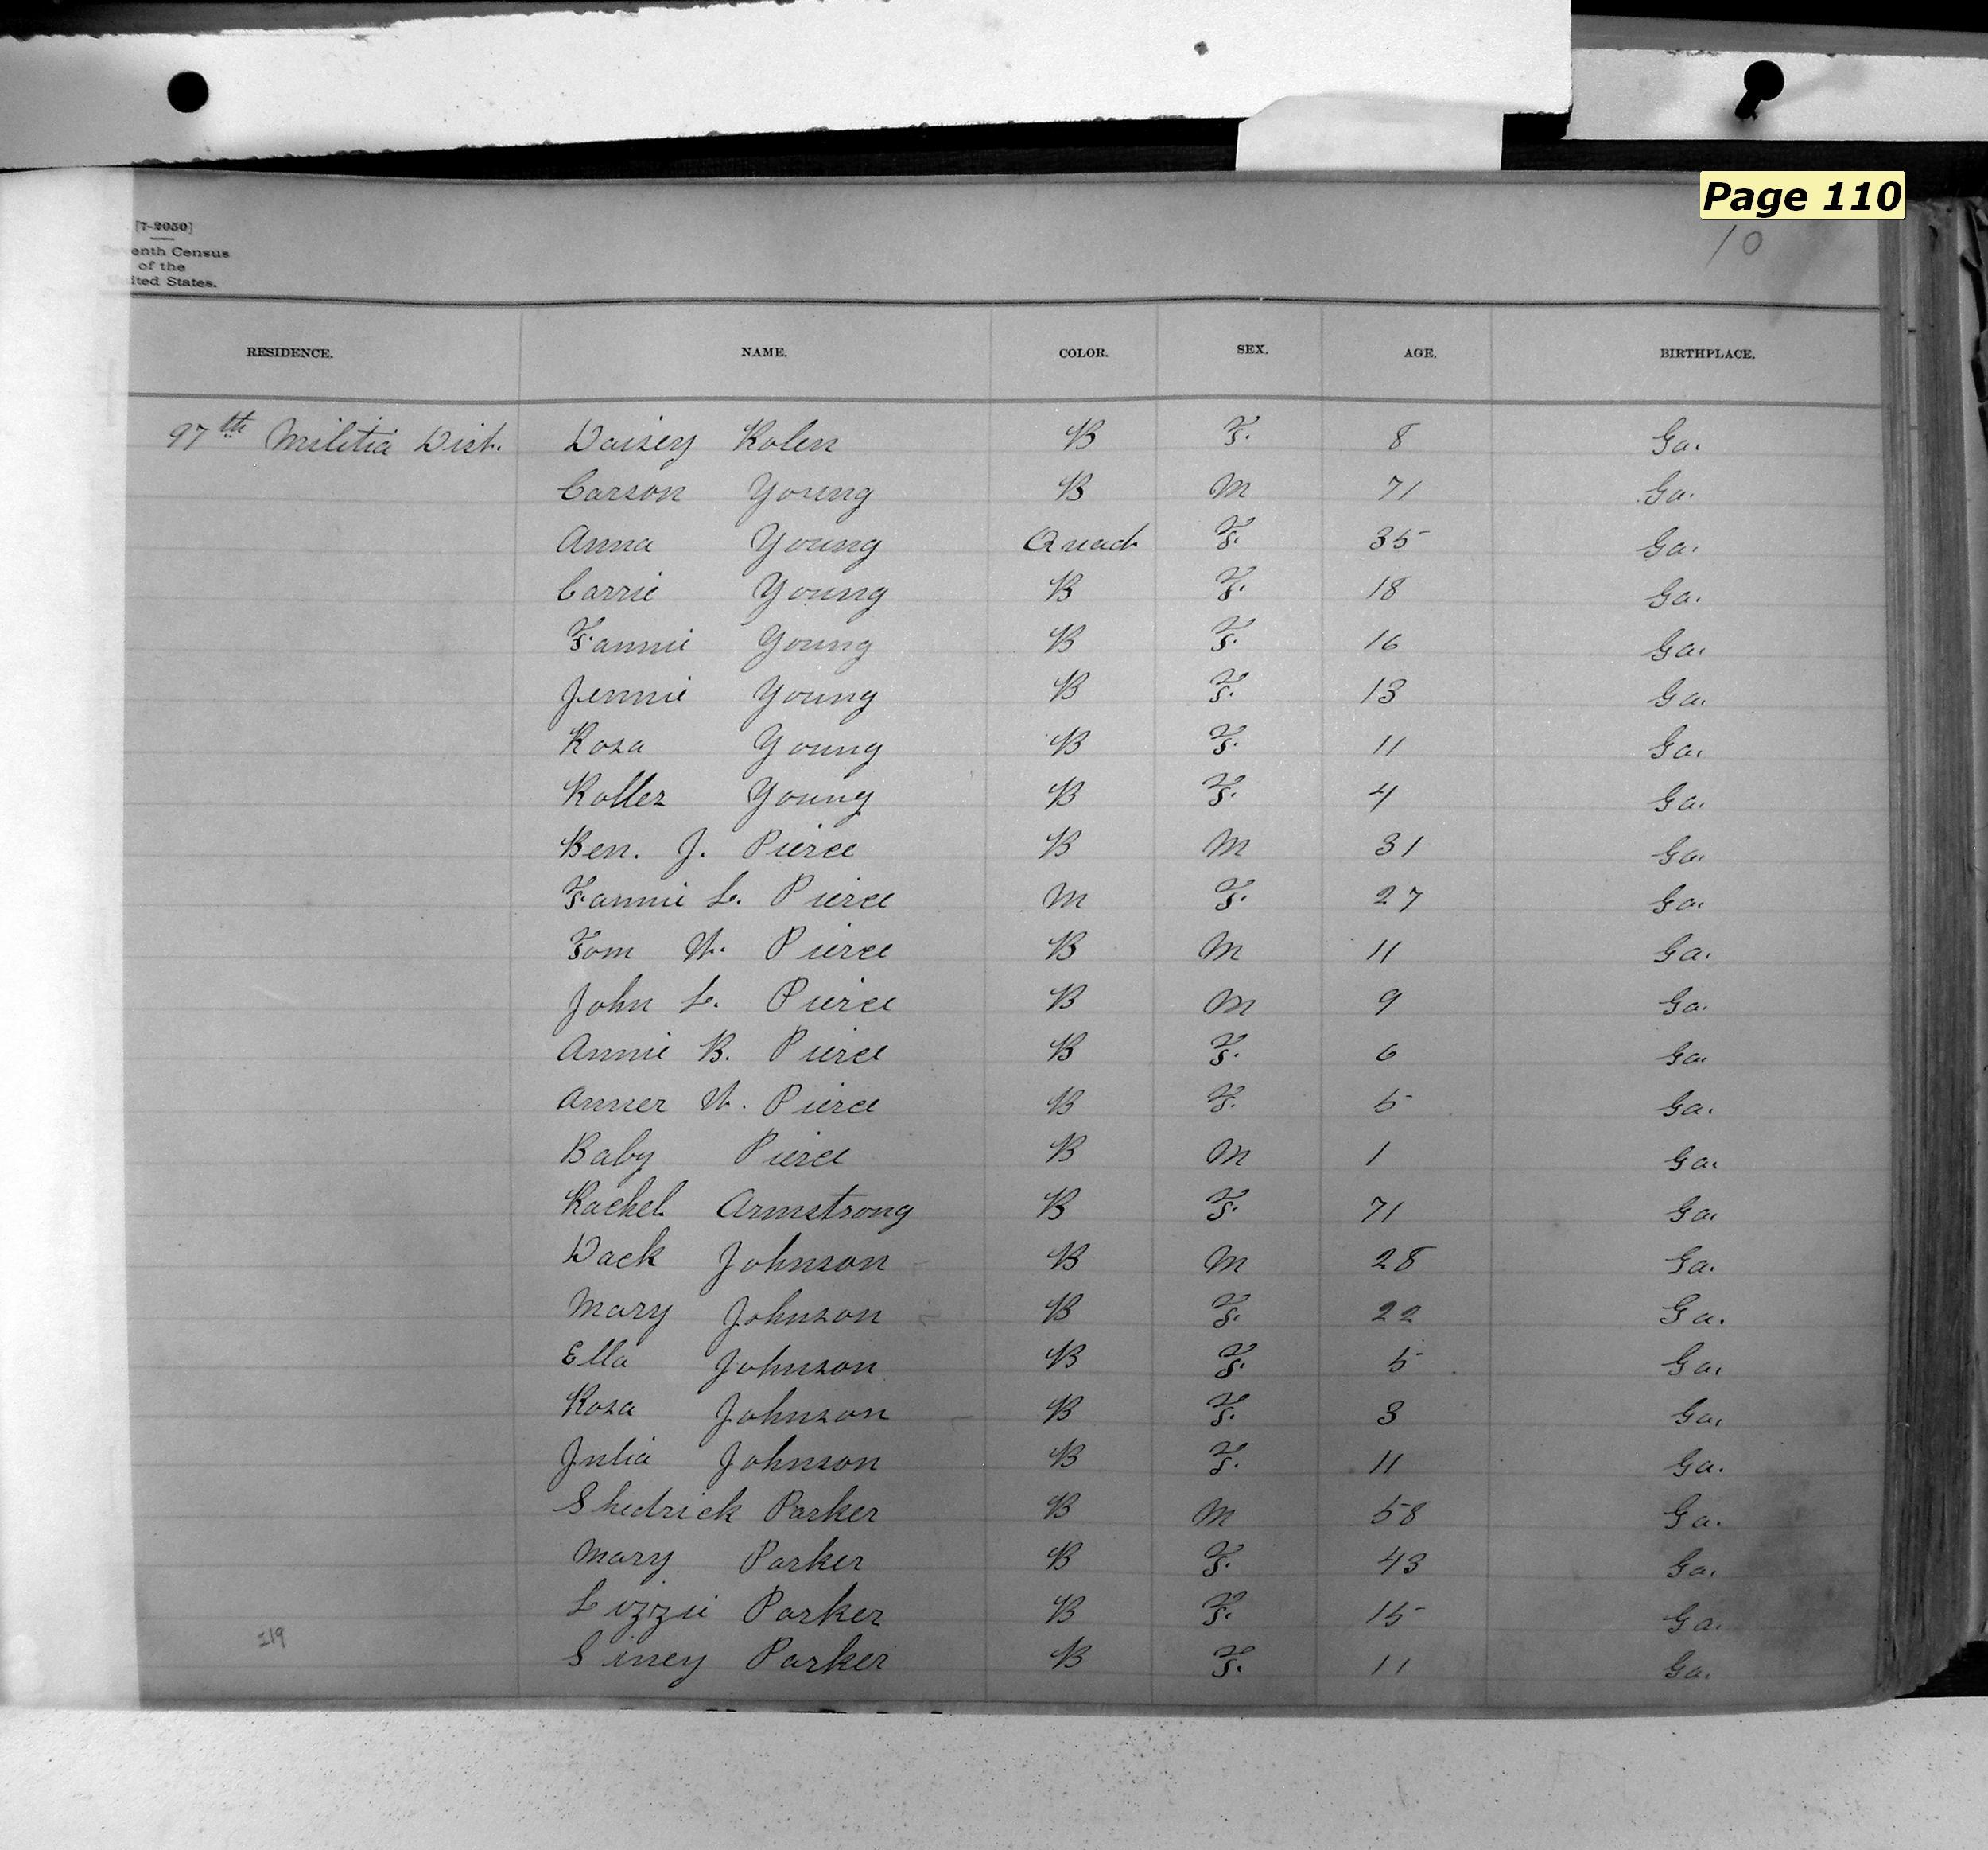 Page 110
10
[7-2050]
enth Census
of the
ited States.
RESIDENCE. NAME. COLOR. SEX. AGE. BIRTHPLACE.
97th Militia Dist. Daisey Rolen B F. 8 Ga.
Carson Young B M 71 Ga.
Anna Young Quad F. 35 Ga.
Carrie Young B F. 18 Ga.
Fannie Young B F. 16 Ga.
Jennie Young B F. 13 Ga.
Rosa Young B F. 11 Ga.
Young B F. 4 Ga.
Ben. J. Pierce B M 31 Ga.
Fannie L. Pierce M F. 27 Ga.
Tom W. Pierce B M 11 Ga.
John L. Pierce B M 9 Ga.
Annie B. Pierce B F. 6 Ga.
Anner W. Pierce B F. 5 Ga.
Baby Pierce B M 1 Ga.
Rachel Armstrong B F. 71 Ga.
Dack Johnson B M 28 Ga.
Mary Johnson B F. 22 Ga.
Ella Johnson B F. 5 Ga.
Rosa Johnson B F. 3 Ga.
Julia Johnson B F. 11 Ga.
Shedrick Parker B M 58 Ga.
Mary Parker B F. 43 Ga.
Lizzie Parker B F. 15 Ga.
Siney Parker B F. 11 Ga.